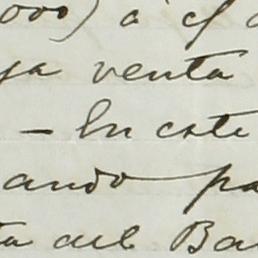 000) á c/
ya venta
— En este
ando pa
ta del Ba